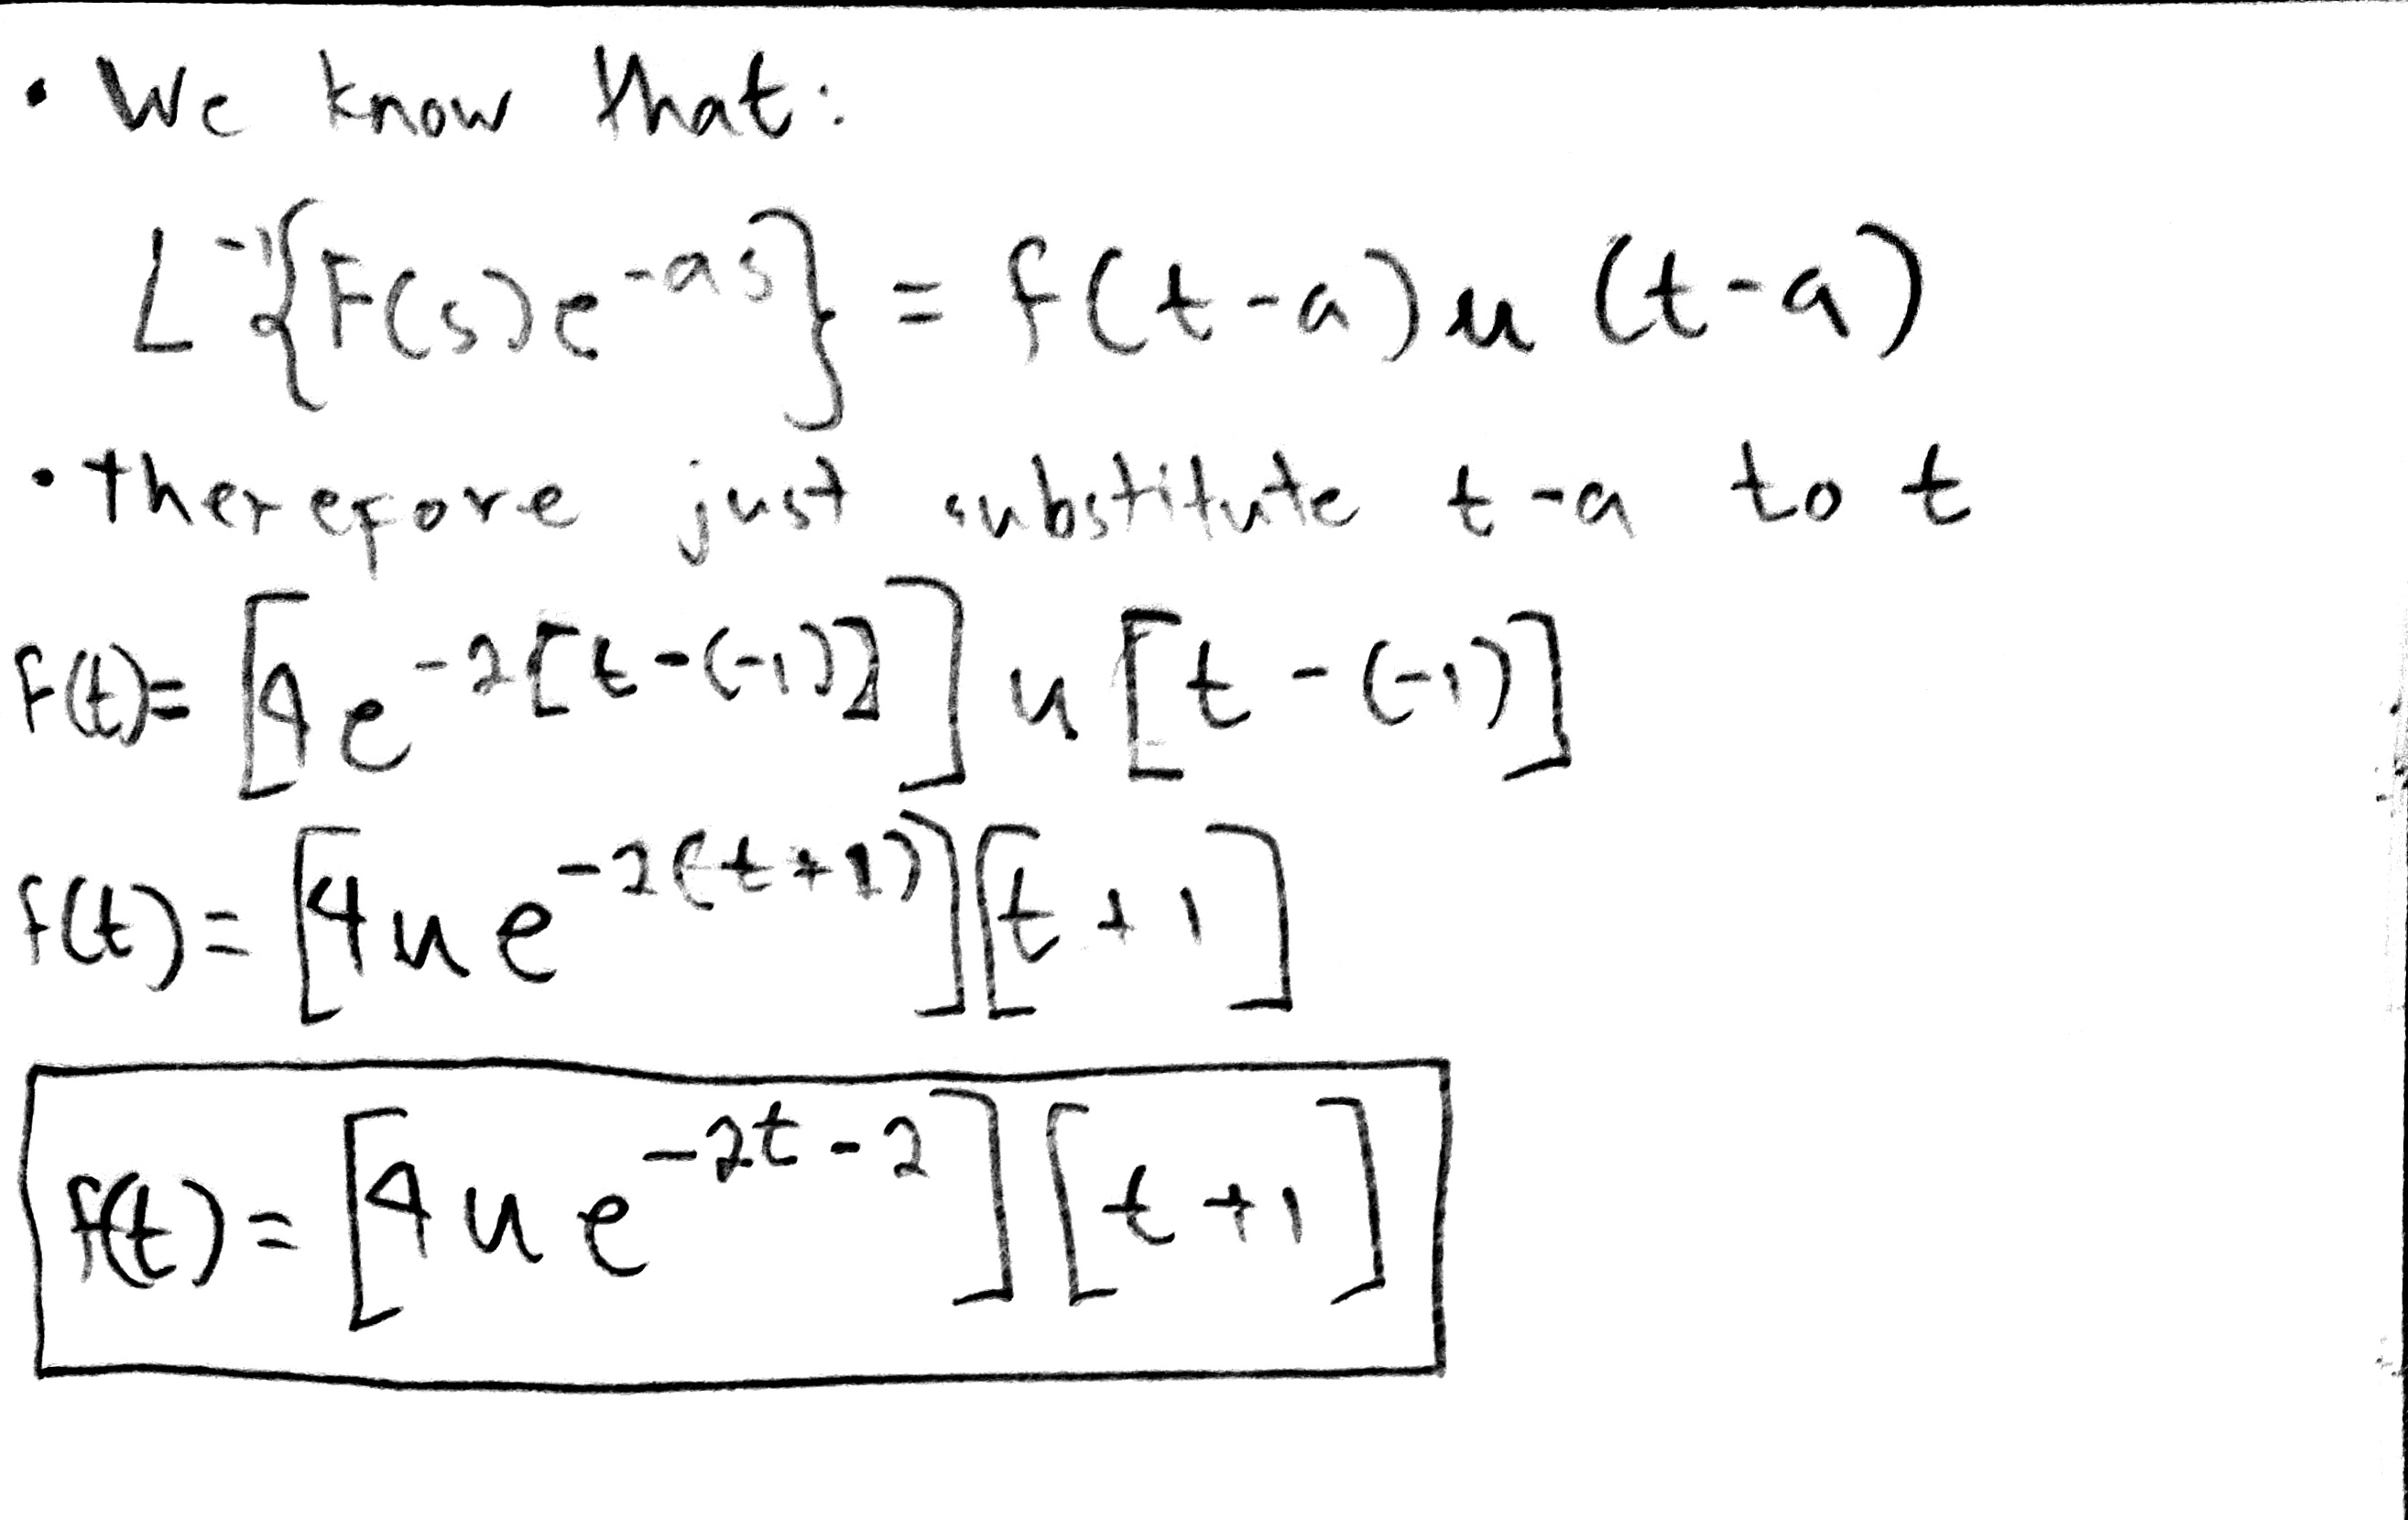 • We know that:
L⁻¹{F(s)e^(-as)} = f(t-a)u(t-a)
• therefore just substitute t-a to t
f(t)= [4e^(-2[t-(-1)])]u[t-(-1)]
f(t)= [4ue^(-2(t+1))][t+1]
f(t)= [4ue^(-2t-2)][t+1]